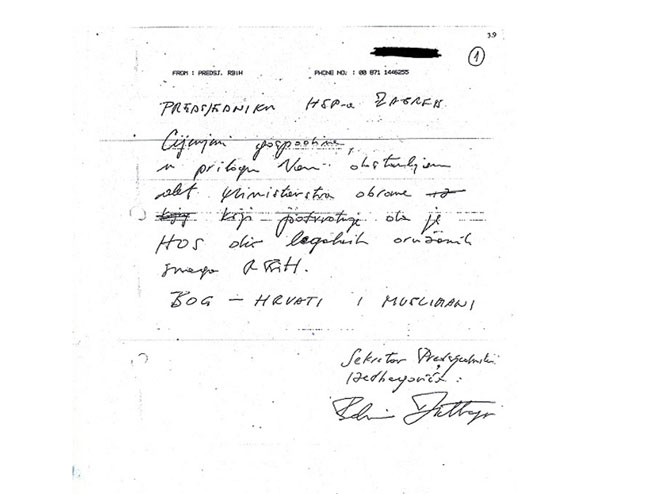 39
1
FROM : PREDSJ. RBIH PHONE NO. : 00 871 1446255
PREDSJEDNIKU HSP-a ZAGREB
Cijenjeni gospodine,
u prilogu Vam dostavljam
akt Ministarstva obrane
koji potvrđuje da je
HOS dio legalnih oružanih
snaga RBiH.
BOG – HRVATI I MUSLIMANI
Sekretar Predsjednika
Izetbegovića :